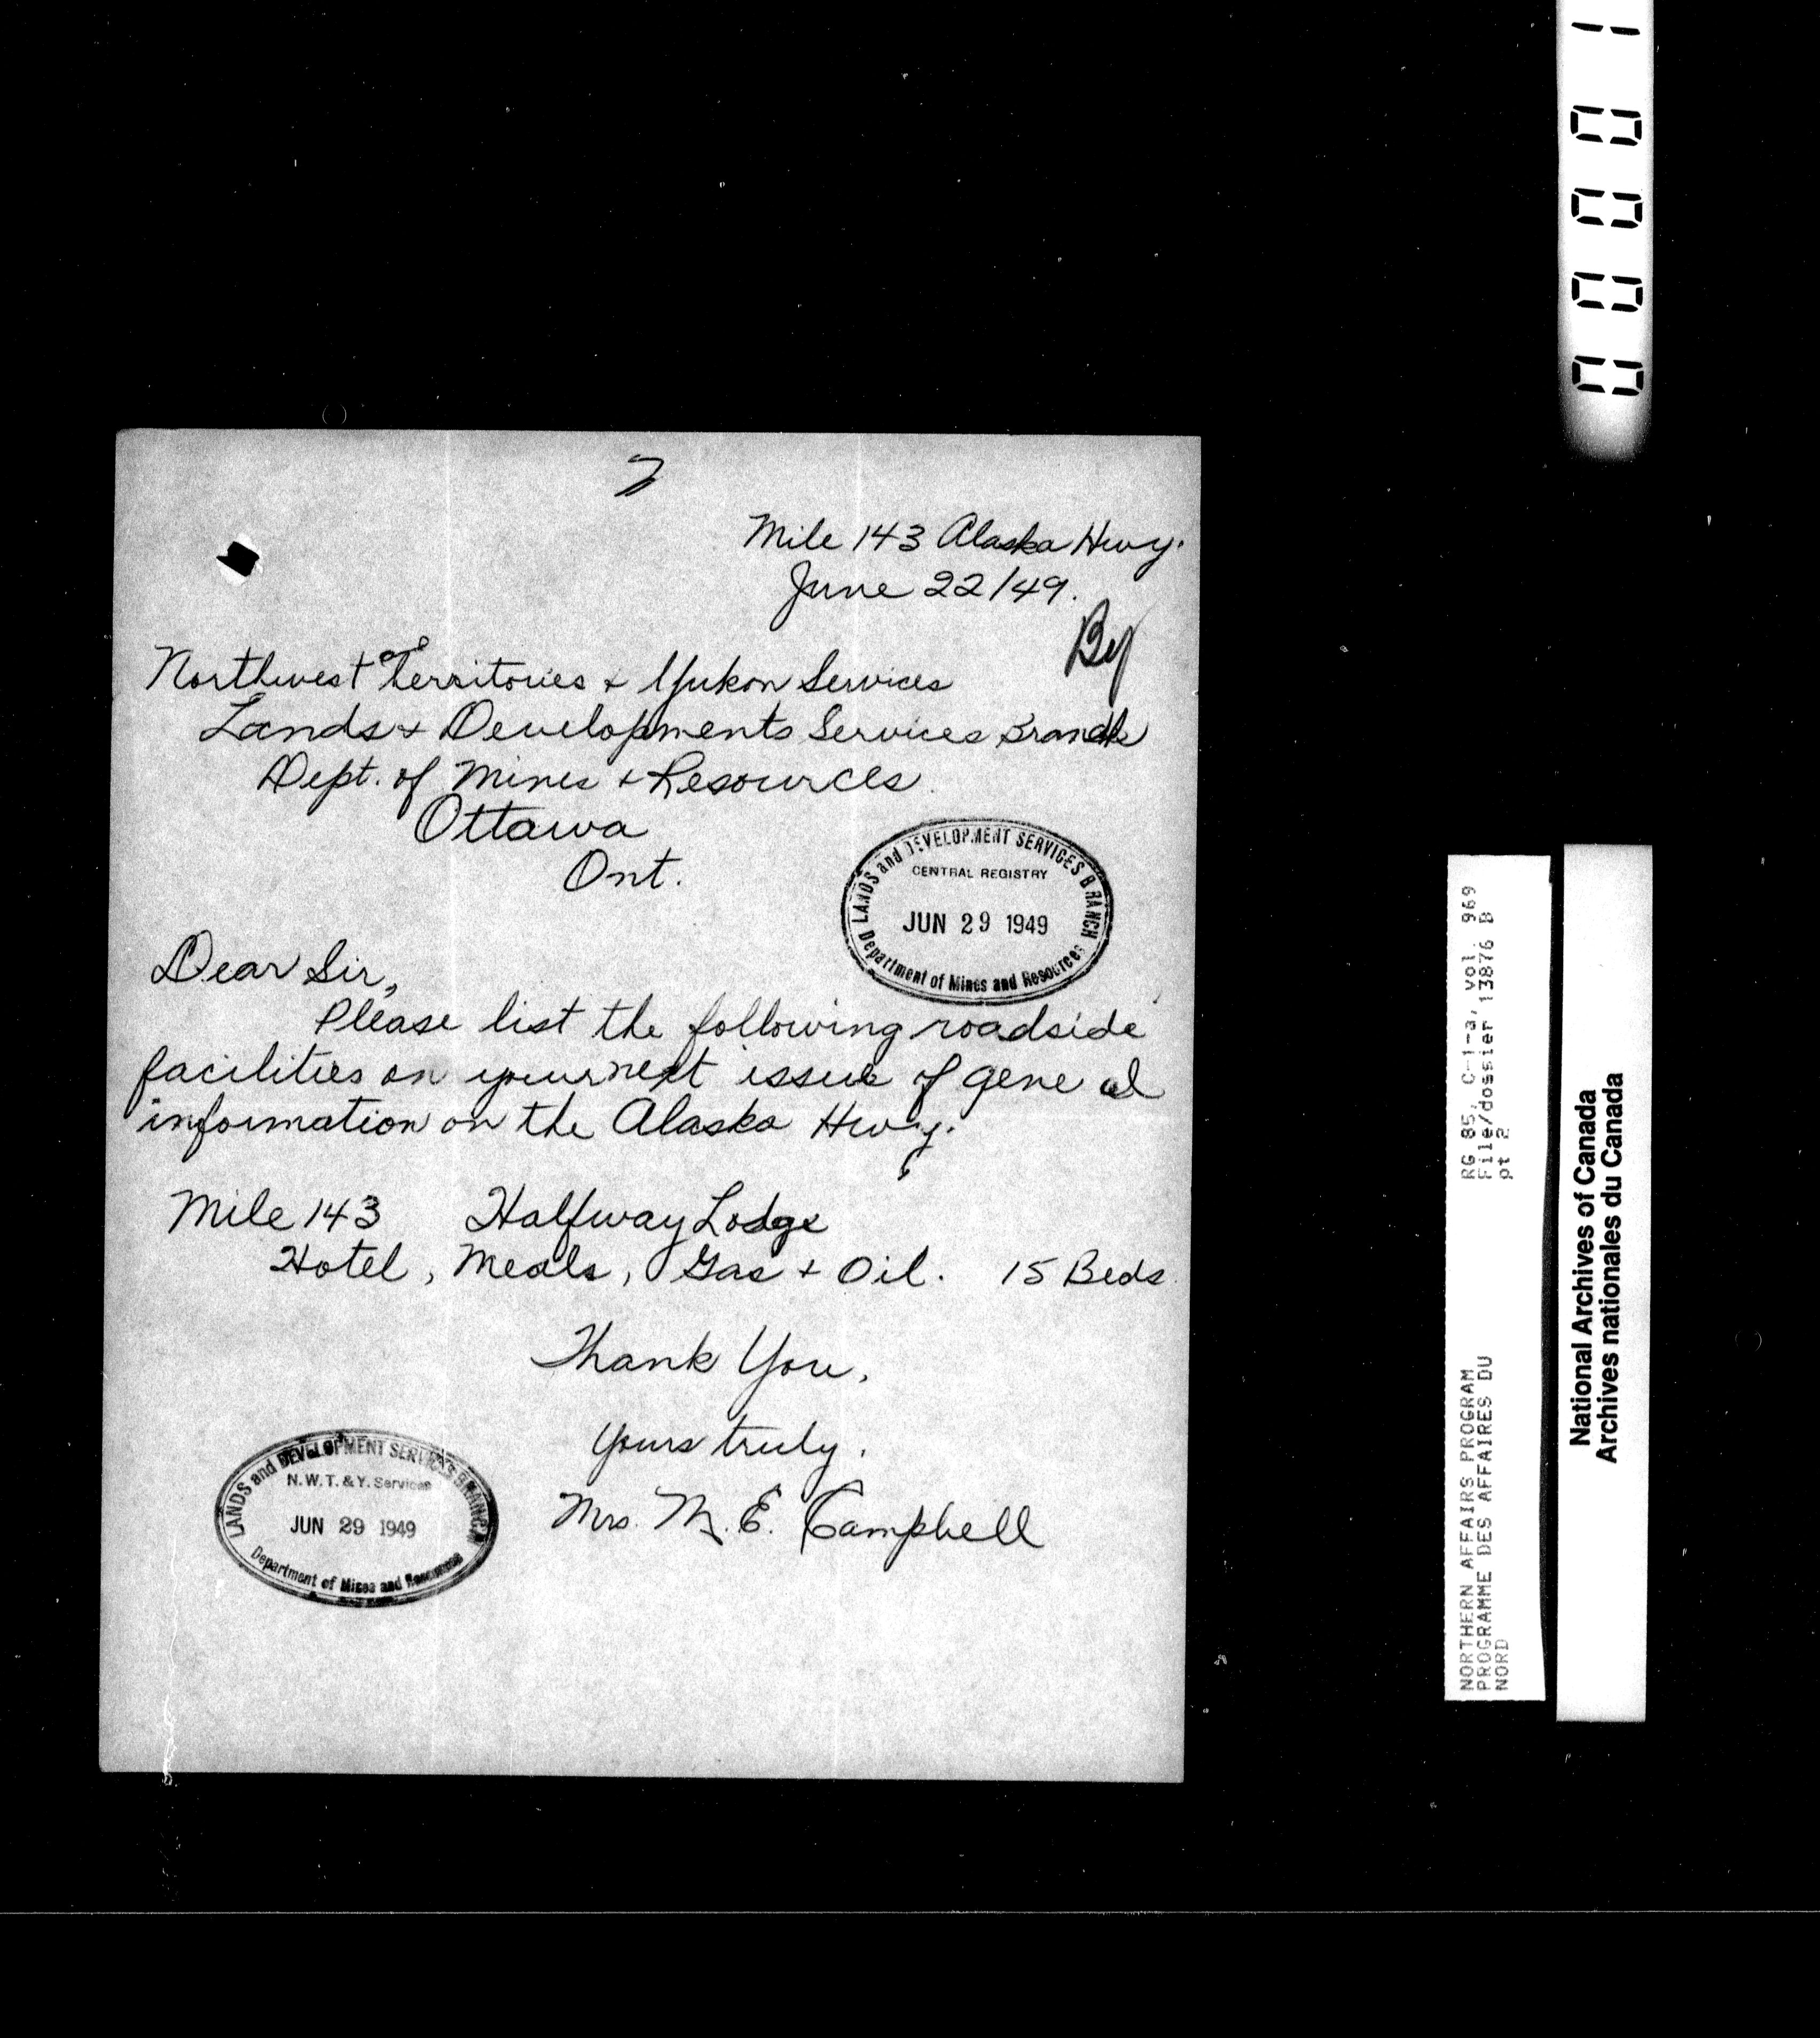 Mile 143 Alaska Hwy.
June 22/49.
Northwest Territories + Yukon Services
Lands + Developments Services Branch
Dept. of Mines + Resources.
Ottawa
Ont.
LANDS and DEVELOPMENT SERVICES BRANCH
CENTRAL REGISTRY
JUN 29 1949
Department of Mines and Resources
Dear Sir,
Please list the following roadside
facilities on your next issue of gene al
information on the Alaska Hwy.
Mile 143 Halfway Lodge
Hotel, Meals, Gas + Oil. 15 Beds.
Thank You,
Yours truly,
Mrs. M. E. Campbell
LANDS and DEVELOPMENT SERVICES BRANCH
N.W.T. & Y. Services
JUN 29 1949
Department of Mines and Resources
00001
RG 85, C-1-a, vol. 969
File/dossier 13876 B
pt 2
NORTHERN AFFAIRS PROGRAM
PROGRAMME DES AFFAIRES DU
NORD
National Archives of Canada
Archives nationales du Canada